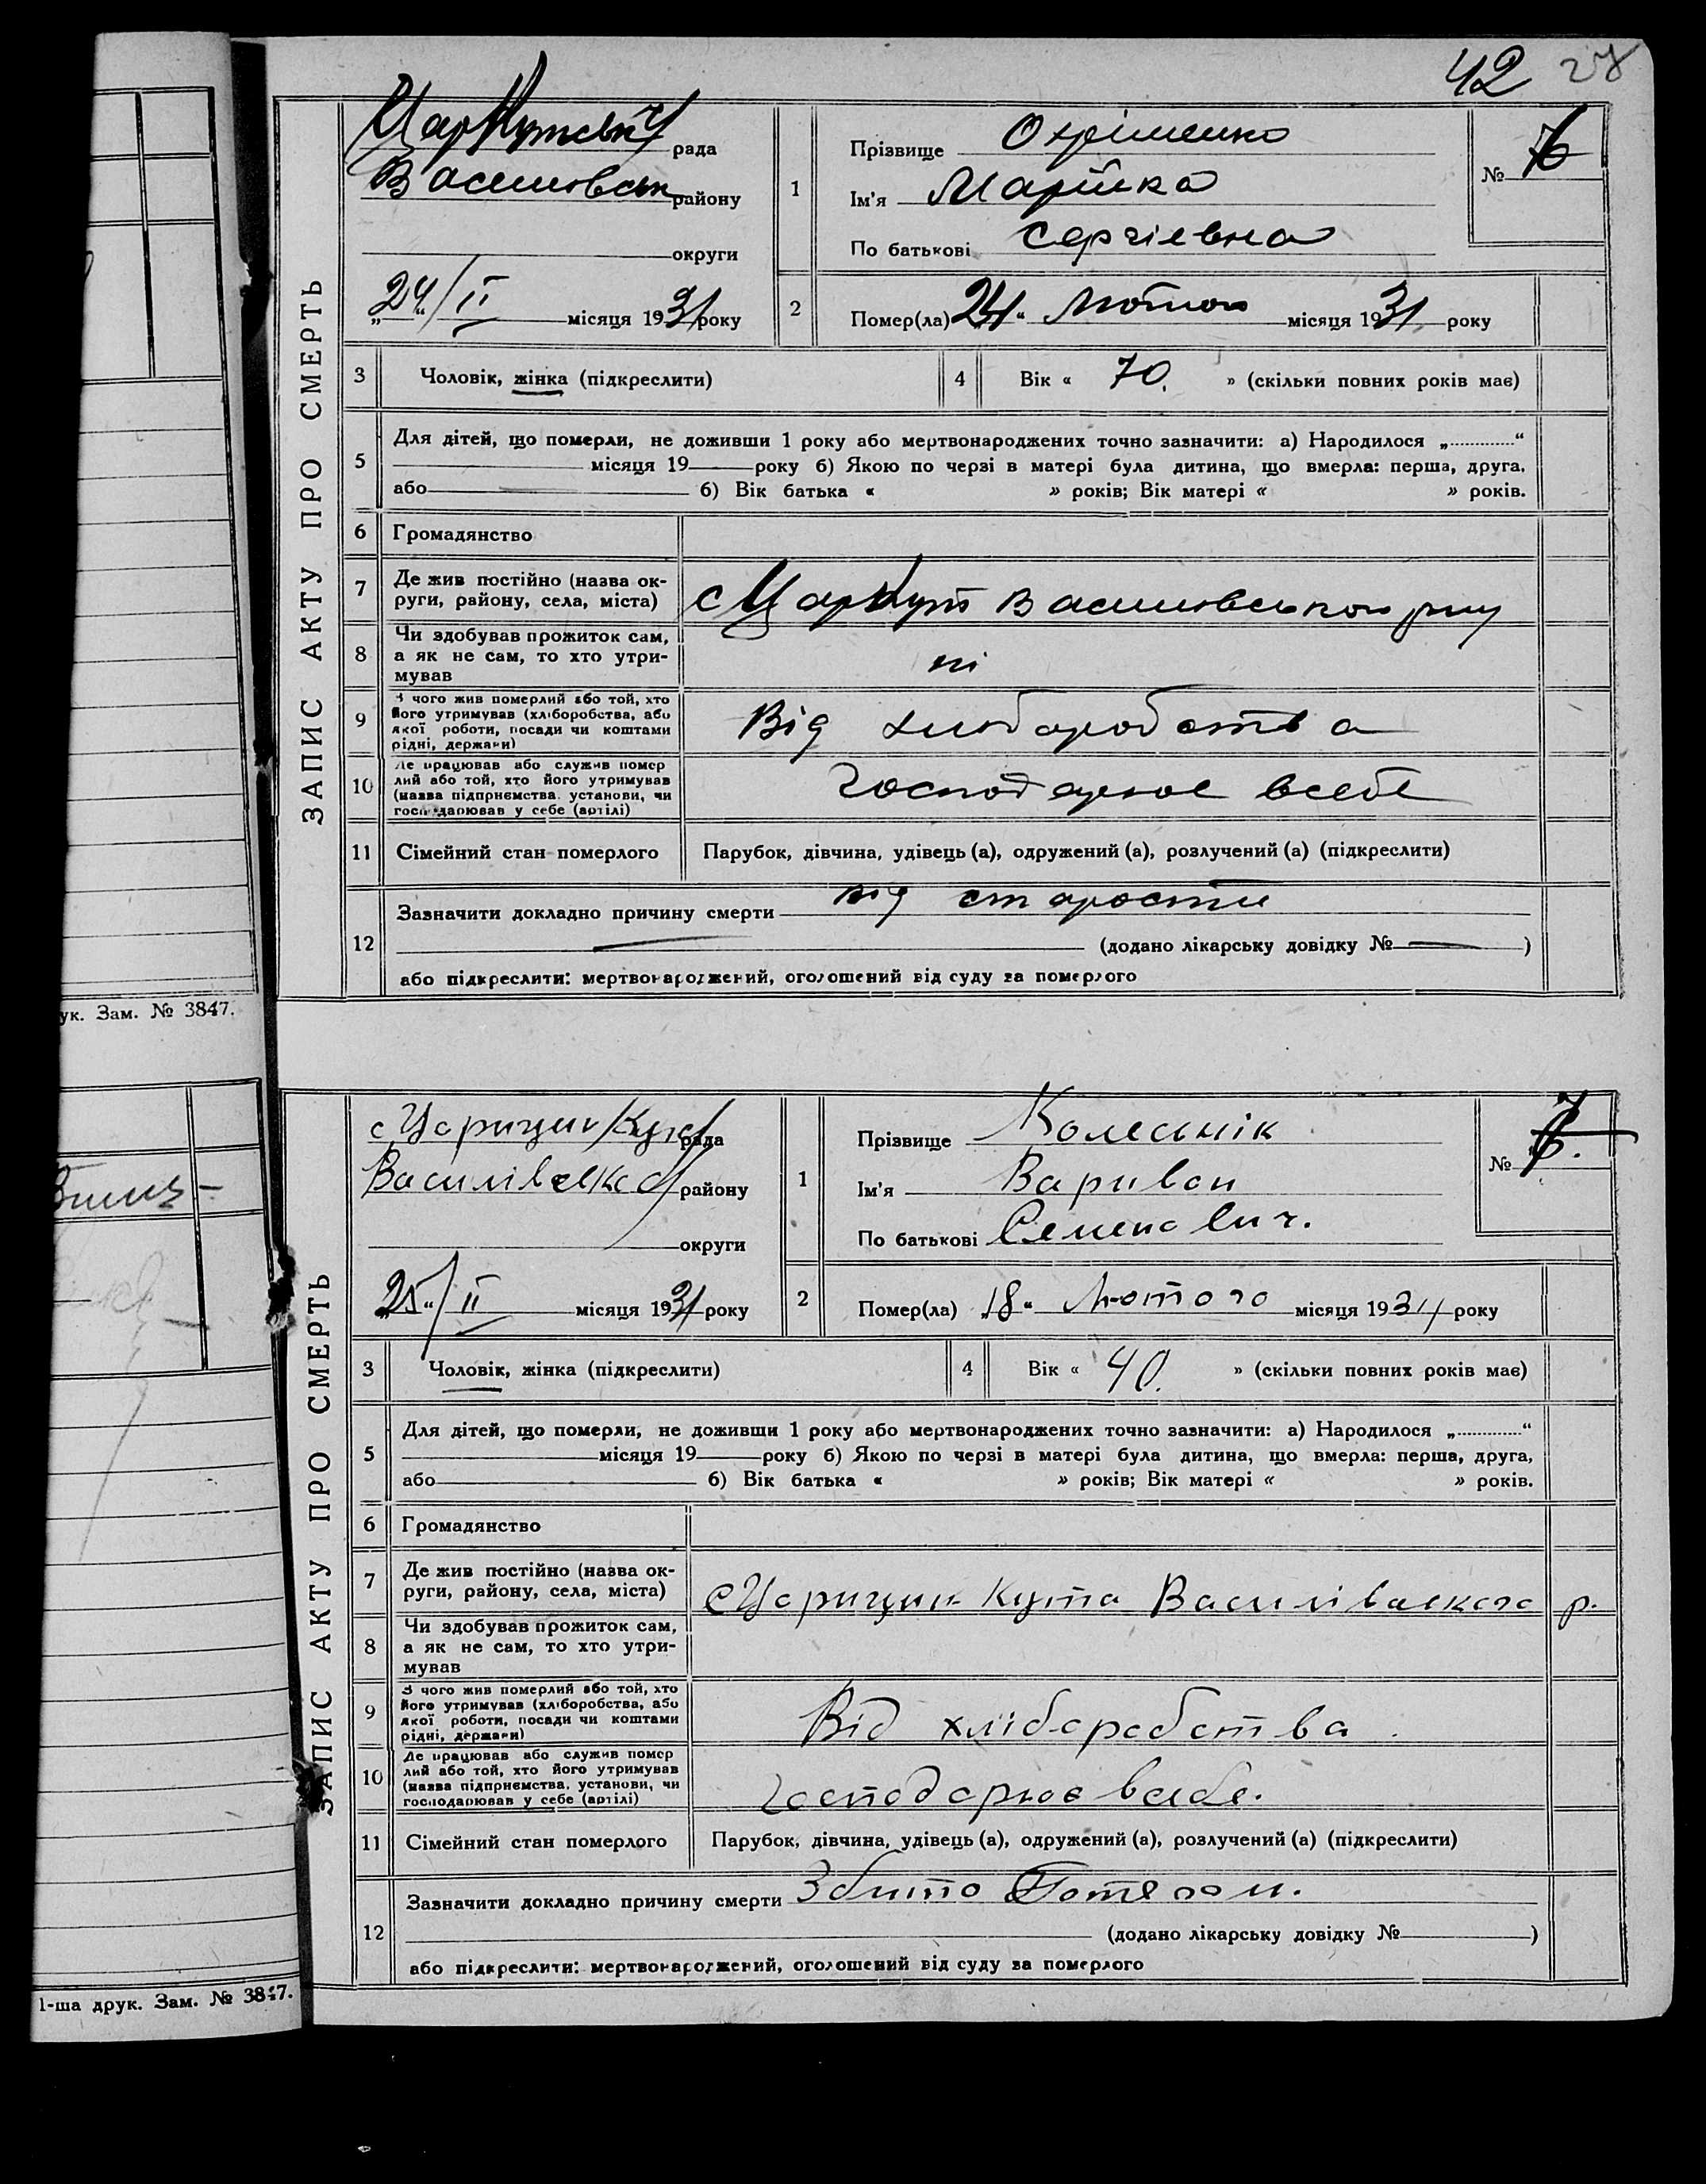 42 27
ЗАПИС АКТУ ПРО СМЕРТЬ
ЦарКутській рада
Васиновськ району
округи
„24“/II місяця 1931 року
1
Прізвище Охріменко
Ім'я Марійка
По батькові Сергіевна
№ 6
2
Помер(ла) 24 “ Лютого місяця 1931 року
3 Чоловік, жінка (підкреслити)
4 Вік « 70. » (скільки повних років має)
5 Для дітей, що померли, не доживши 1 року або мертвонароджених точно зазначити: а) Народилося „............“
місяця 19 року б) Якою по черзі в матері була дитина, що вмерла: перша, друга,
або б) Вік батька « » років; Вік матері « » років.
6 Громадянство
7 Де жив постійно (назва ок-
руги, району, села, міста) с ЦарКут Васиновського р-ну
8 Чи здобував прожиток сам,
а як не сам, то хто утри-
мував ні
9 З чого жив померлий або той, хто
його утримував (хліборобства, або
якої роботи, посади чи коштами
рідні, держави) Від хлиборобства
10 Де працював або служив помер
лий або той, хто його утримував
(назва підприємства, установи, чи
господарював у себе (артілі) Господарюе всебе
11 Сімейний стан померлого Парубок, дівчина, удівець (а), одружений (а), розлучений (а) (підкреслити)
12 Зазначити докладно причину смерти від старости
(додано лікарську довідку № )
або підкреслити: мертвонароджений, оголошений від суду за померлого
ук. Зам. № 3847.
ЗАПИС АКТУ ПРО СМЕРТЬ
с Царицин Кут рада
Василівська району
округи
„25“/II місяця 1931 року
1
Прізвище Колеснік
Ім'я Вариван
По батькові Семенович.
№ 7.
2
Помер(ла) „18“ Лютого місяця 1931 року
3 Чоловік, жінка (підкреслити)
4 Вік « 40. » (скільки повних років має)
5 Для дітей, що померли, не доживши 1 року або мертвонароджених точно зазначити: а) Народилося „............“
місяця 19 року б) Якою по черзі в матері була дитина, що вмерла: перша, друга,
або б) Вік батька « » років; Вік матері « » років.
6 Громадянство
7 Де жив постійно (назва ок-
руги, району, села, міста) с Царицин-Кута Василівського р.
8 Чи здобував прожиток сам,
а як не сам, то хто утри-
мував
9 З чого жив померлий або той, хто
його утримував (хліборобства, або
якої роботи, посади чи коштами
рідні, держави) Від хліборобства.
10 Де працював або служив помер
лий або той, хто його утримував
(назва підприємства, установи, чи
господарював у себе (артілі) Господарює всебе.
11 Сімейний стан померлого Парубок, дівчина, удівець (а), одружений (а), розлучений (а) (підкреслити)
12 Зазначити докладно причину смерти Збито Потягом.
(додано лікарську довідку № )
або підкреслити: мертвонароджений, оголошений від суду за померлого
1-ша друк. Зам. № 3847.